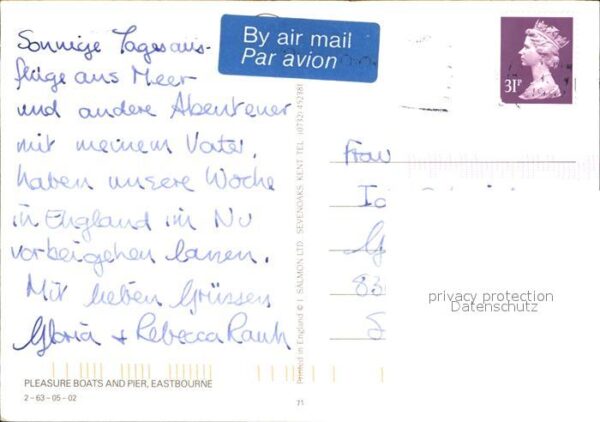 Sonnige Tagesaus-
flüge ans Meer
und andere Abenteuer
mit meinem Vater,
haben unsere Woche
in England im Nu
vorbeigehen lassen.
Mit lieben Grüssen
Gloria + Rebecca Rauh
By air mail
Par avion
31P
Frau
83
privacy protection
Datenschutz
Printed in England © J. SALMON LTD. SEVENOAKS. KENT. TEL. (0732) 452381
PLEASURE BOATS AND PIER, EASTBOURNE
2-63-05-02
71